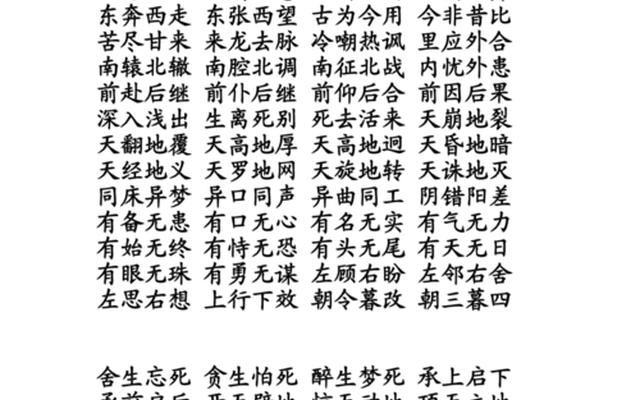 东奔西走 东张西望 古为今用 今非昔比
苦尽甘来 来龙去脉 冷嘲热讽 里应外合
南辕北辙 南腔北调 南征北战 内忧外患
前赴后继 前仆后继 前仰后合 前因后果
深入浅出 生离死别 死去活来 天崩地裂
天翻地覆 天高地厚 天高地迥 天昏地暗
天经地义 天罗地网 天旋地转 天诛地灭
同床异梦 异口同声 异曲同工 阴错阳差
有备无患 有口无心 有名无实 有气无力
有始无终 有恃无恐 有头无尾 有天无日
有眼无珠 有勇无谋 左顾右盼 左邻右舍
左思右想 上行下效 朝令暮改 朝三暮四
舍生忘死 贪生怕死 醉生梦死 承上启下